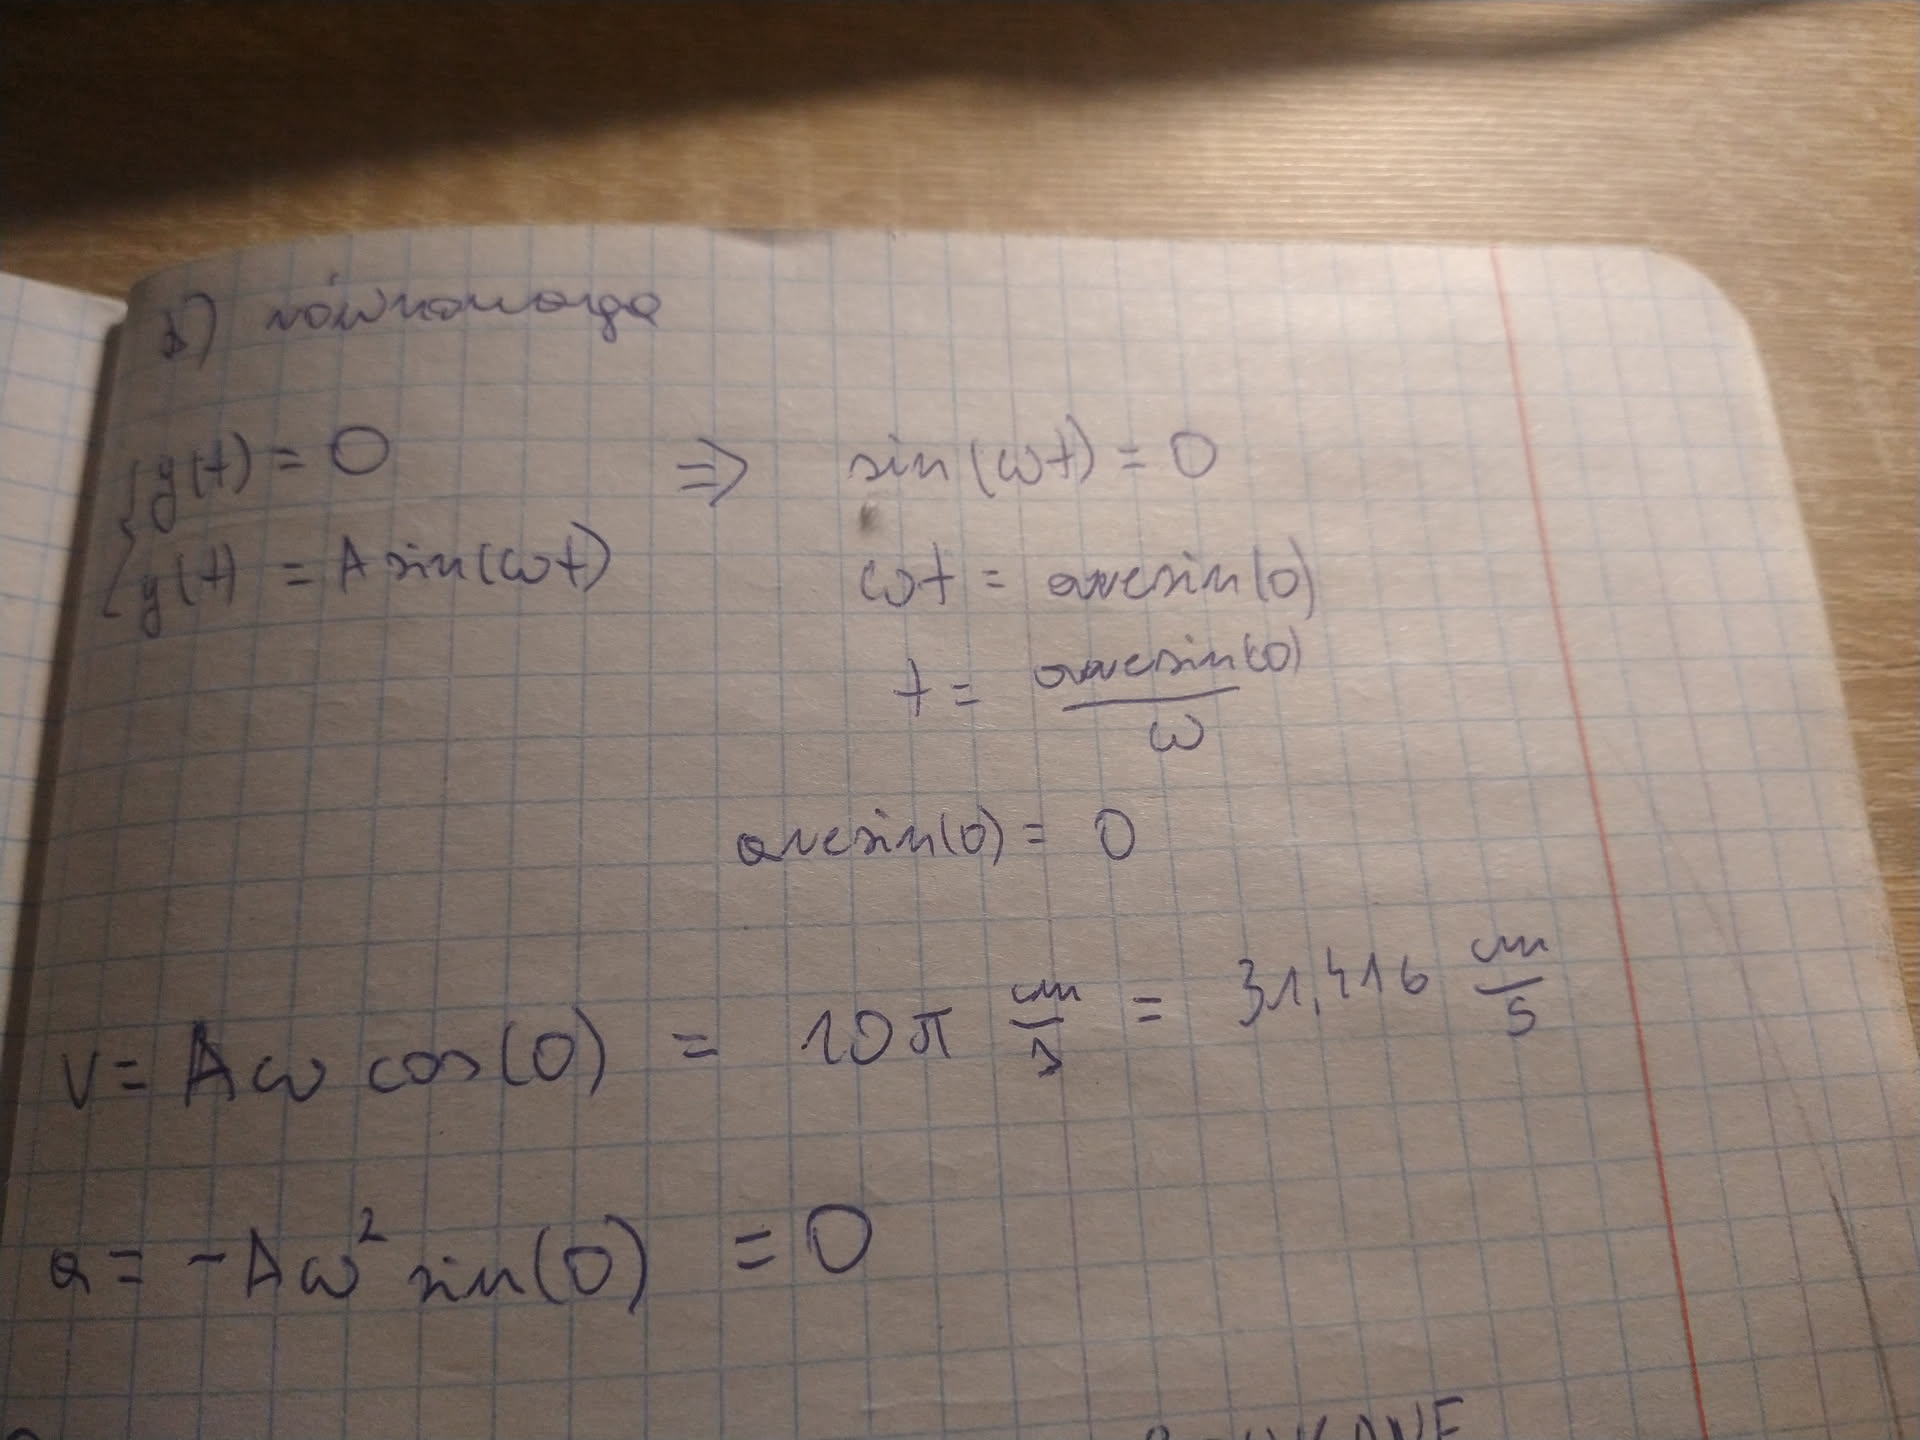 2) równowaga
y(t) = 0 => sin(ωt) = 0
y(t) = A sin(ωt)
ωt = arcsin(0)
t = arcsin(0) / ω
arcsin(0) = 0
v = Aω cos(0) = 10π cm/s = 31,416 cm/s
a = -Aω² sin(0) = 0